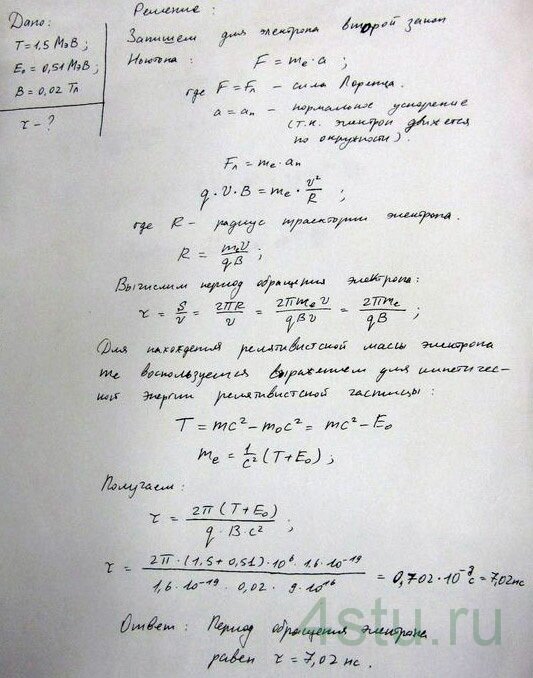 Дано:
T = 1,5 МэВ;
E₀ = 0,51 МэВ;
B = 0,02 Тл
τ - ?
Решение:
Запишем для электрона второй закон
Ньютона: F = mₑ·a ;
где F = Fл – сила Лоренца.
a = aₙ – нормальное ускорение
(т.к. электрон движется
по окружности).
Fл = mₑ·aₙ
q·v·B = mₑ·v²/R ;
где R – радиус траектории электрона.
R = mₑv/qB ;
Вычислим период обращения электрона:
τ = S/v = 2πR/v = 2πmₑv/qBv = 2πmₑ/qB ;
Для нахождения релятивистской массы электрона
mₑ воспользуемся выражением для кинетичес-
кой энергии релятивистской частицы:
T = mc² – m₀c² = mc² – E₀
mₑ = 1/c² (T+E₀) ;
Получаем:
τ = 2π(T+E₀)/q·B·c² ;
τ = 2π·(1,5+0,51)·10⁶·1,6·10⁻¹⁹/1,6·10⁻¹⁹·0,02·9·10¹⁶ = 0,702·10⁻⁹с = 7,02пс
Ответ: Период обращения электрона
равен τ = 7,02 пс.
4stu.ru